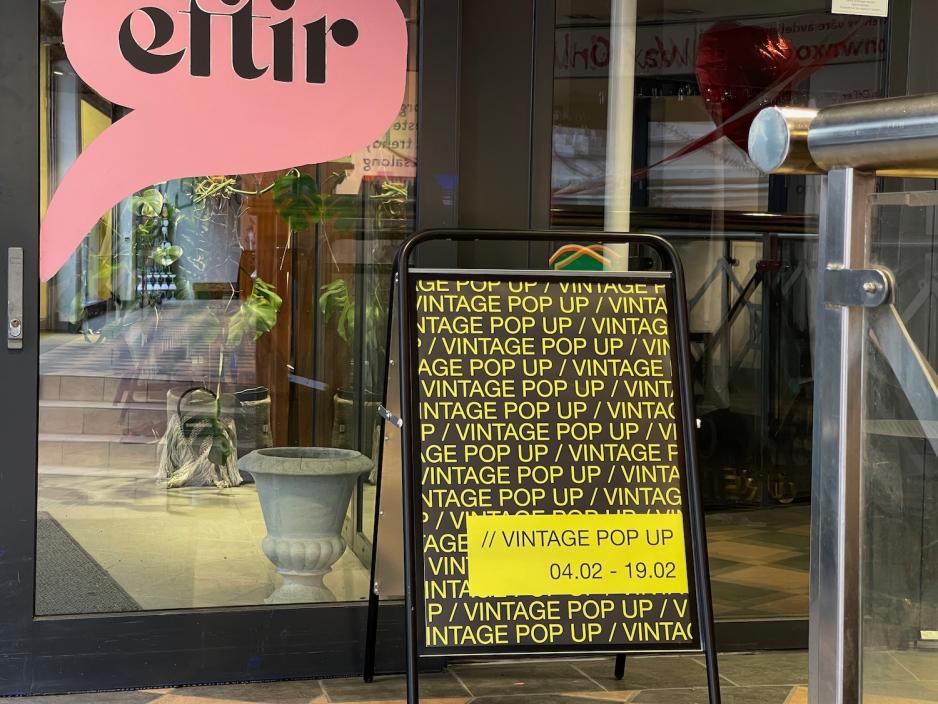 eftir
GE POP UP / VINTAGE P
VINTAGE POP UP / VINTA
NTAGE POP UP / VINTAG
/ VINTAGE POP UP / VIN
AGE POP UP / VINTAGE
VINTAGE POP UP / VINT
INTAGE POP UP / VINTAG
P / VINTAGE POP UP / VI
AGE POP UP / VINTAGE P
VINTAGE POP UP / VINTA
NTAGE POP UP / VINTAG
/ VINTAGE POP UP / VIN
TAGE
// VINTAGE POP UP
VIN
04.02 - 19.02
INTA
P / VINTAGE POP UP / V
INTAGE POP UP / VINTAG